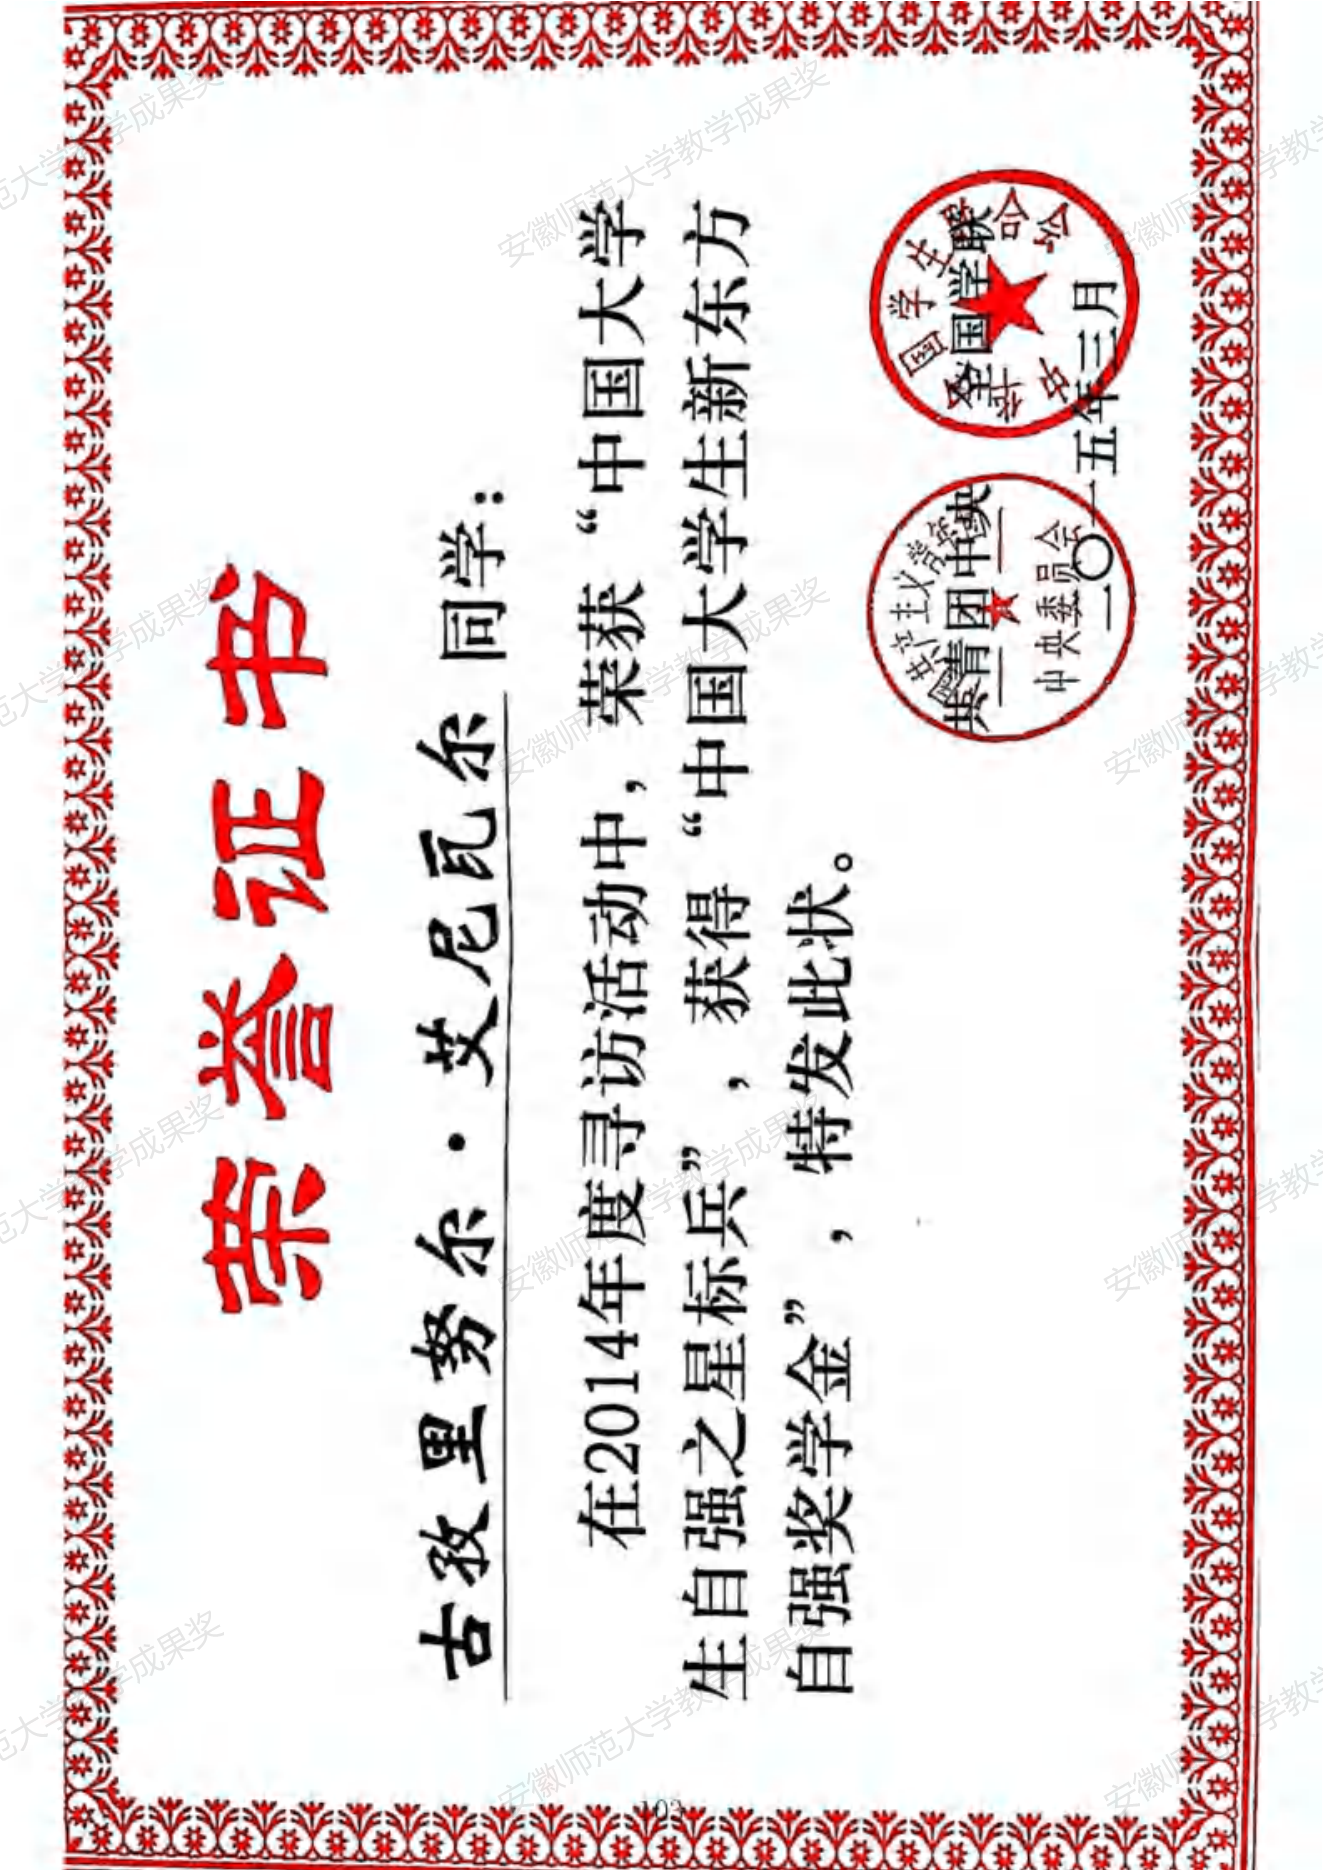 荣誉证书
古孜里努尔·艾尼瓦尔 同学：
在2014年度寻访活动中，荣获“中国大学
生自强之星标兵”，获得“中国大学生新东方
自强奖学金”，特发此状。
共青团中央 全国学联
中国共产主义青年团
中央委员会
中华全国学生联合会
二〇一五年三月
103
安徽师范大学教学成果奖